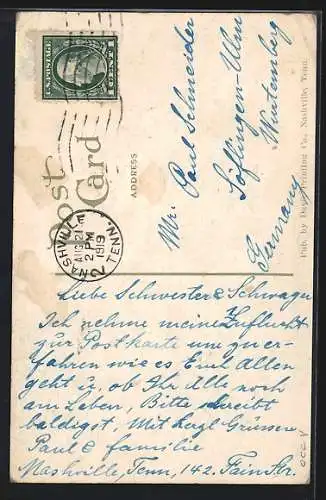 U.S. POSTAGE
1 CENT 1
Post Card
ADDRESS
Mr. Paul Schneider
Söflingen-Ulm
Würtemberg
Germany
Pub. by Printing Co., Nashville, Tenn.
NASHVILLE
AUG 21
2 PM
1919
TENN.
2
Liebe Schwester & Schwager
Ich nehme meine Zuflucht
zur Postkarte um zu er-
fahren wie es Euch Allen
geht u. ob Ihr Alle noch
am Leben, Bitte schreibt
baldigst, Mit herzl Grüssen
Paul & familie
Nashville, Tenn, 142. Fain Str.